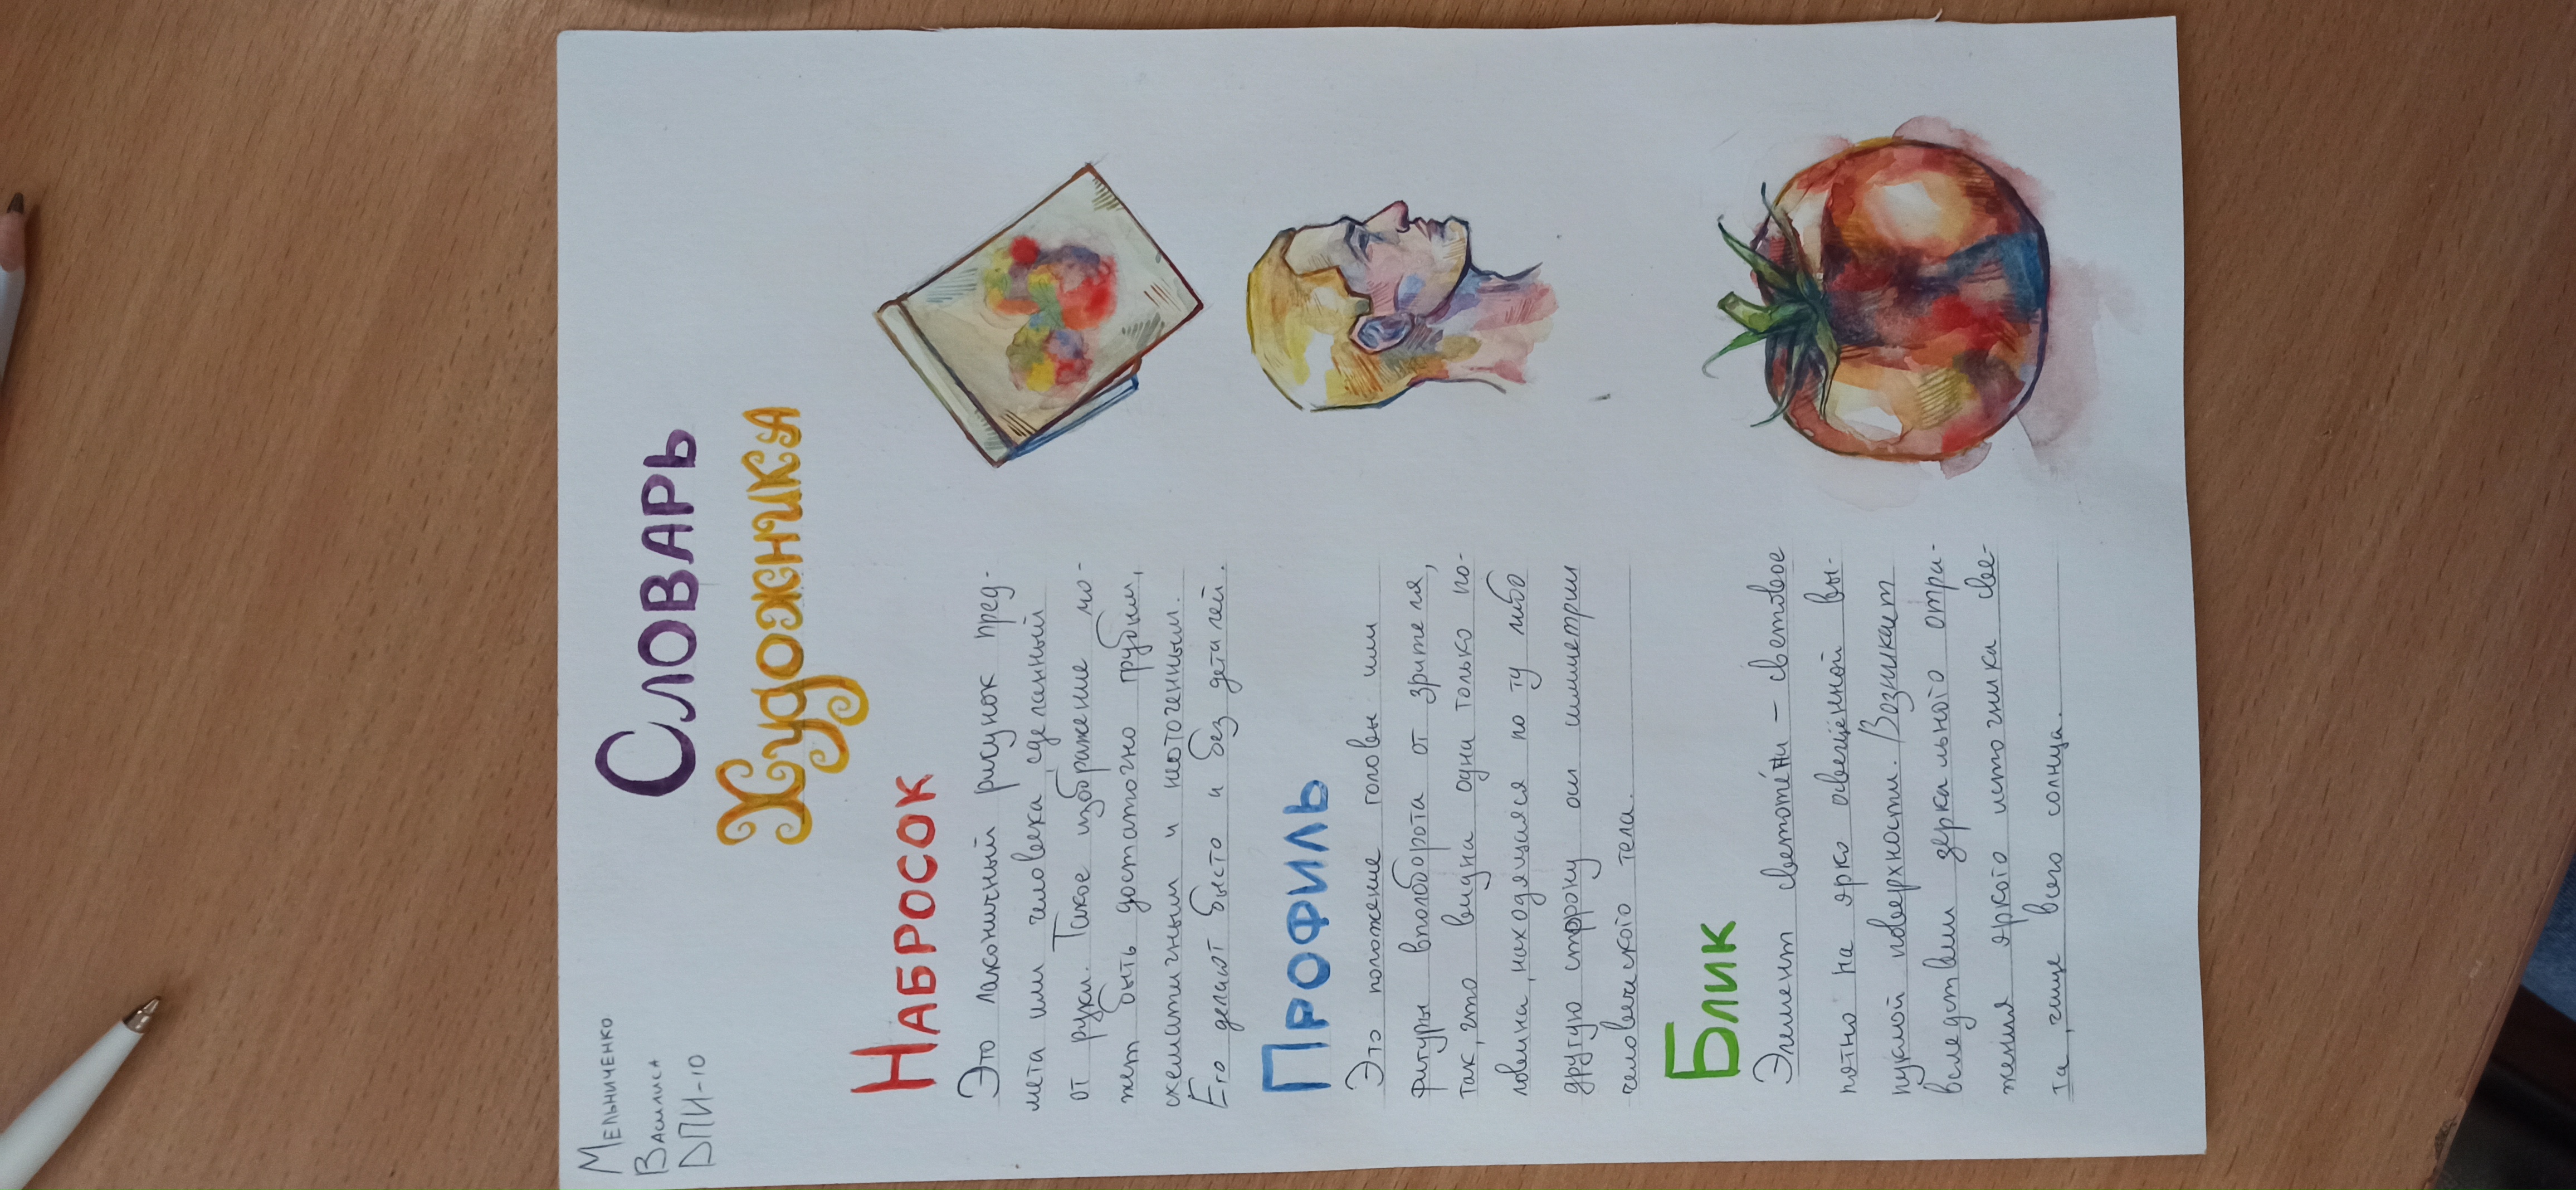 Мельниченко
Василиса
ДПИ-10
Словарь
Художника
Набросок
Это лаконичный рисунок пред-
мета или человека, сделанный
от руки. Такое изображение мо-
жет быть достаточно грубым,
схематичным и неоточенным.
Его делают бысто и без деталей.
Профиль
Это положение головы или
фигуры вполоборота от зрителя,
так, что видна одна только по-
ловина, находящаяся по ту либо
другую сторону оси симметрии
человеческого тела.
Блик
Элемент светоте́ни – световое
пятно на ярко освещённой вы-
пуклой поверхности. Возникает
вследствии зеркального отра-
жения яркого источника све-
та, чаще всего солнца.